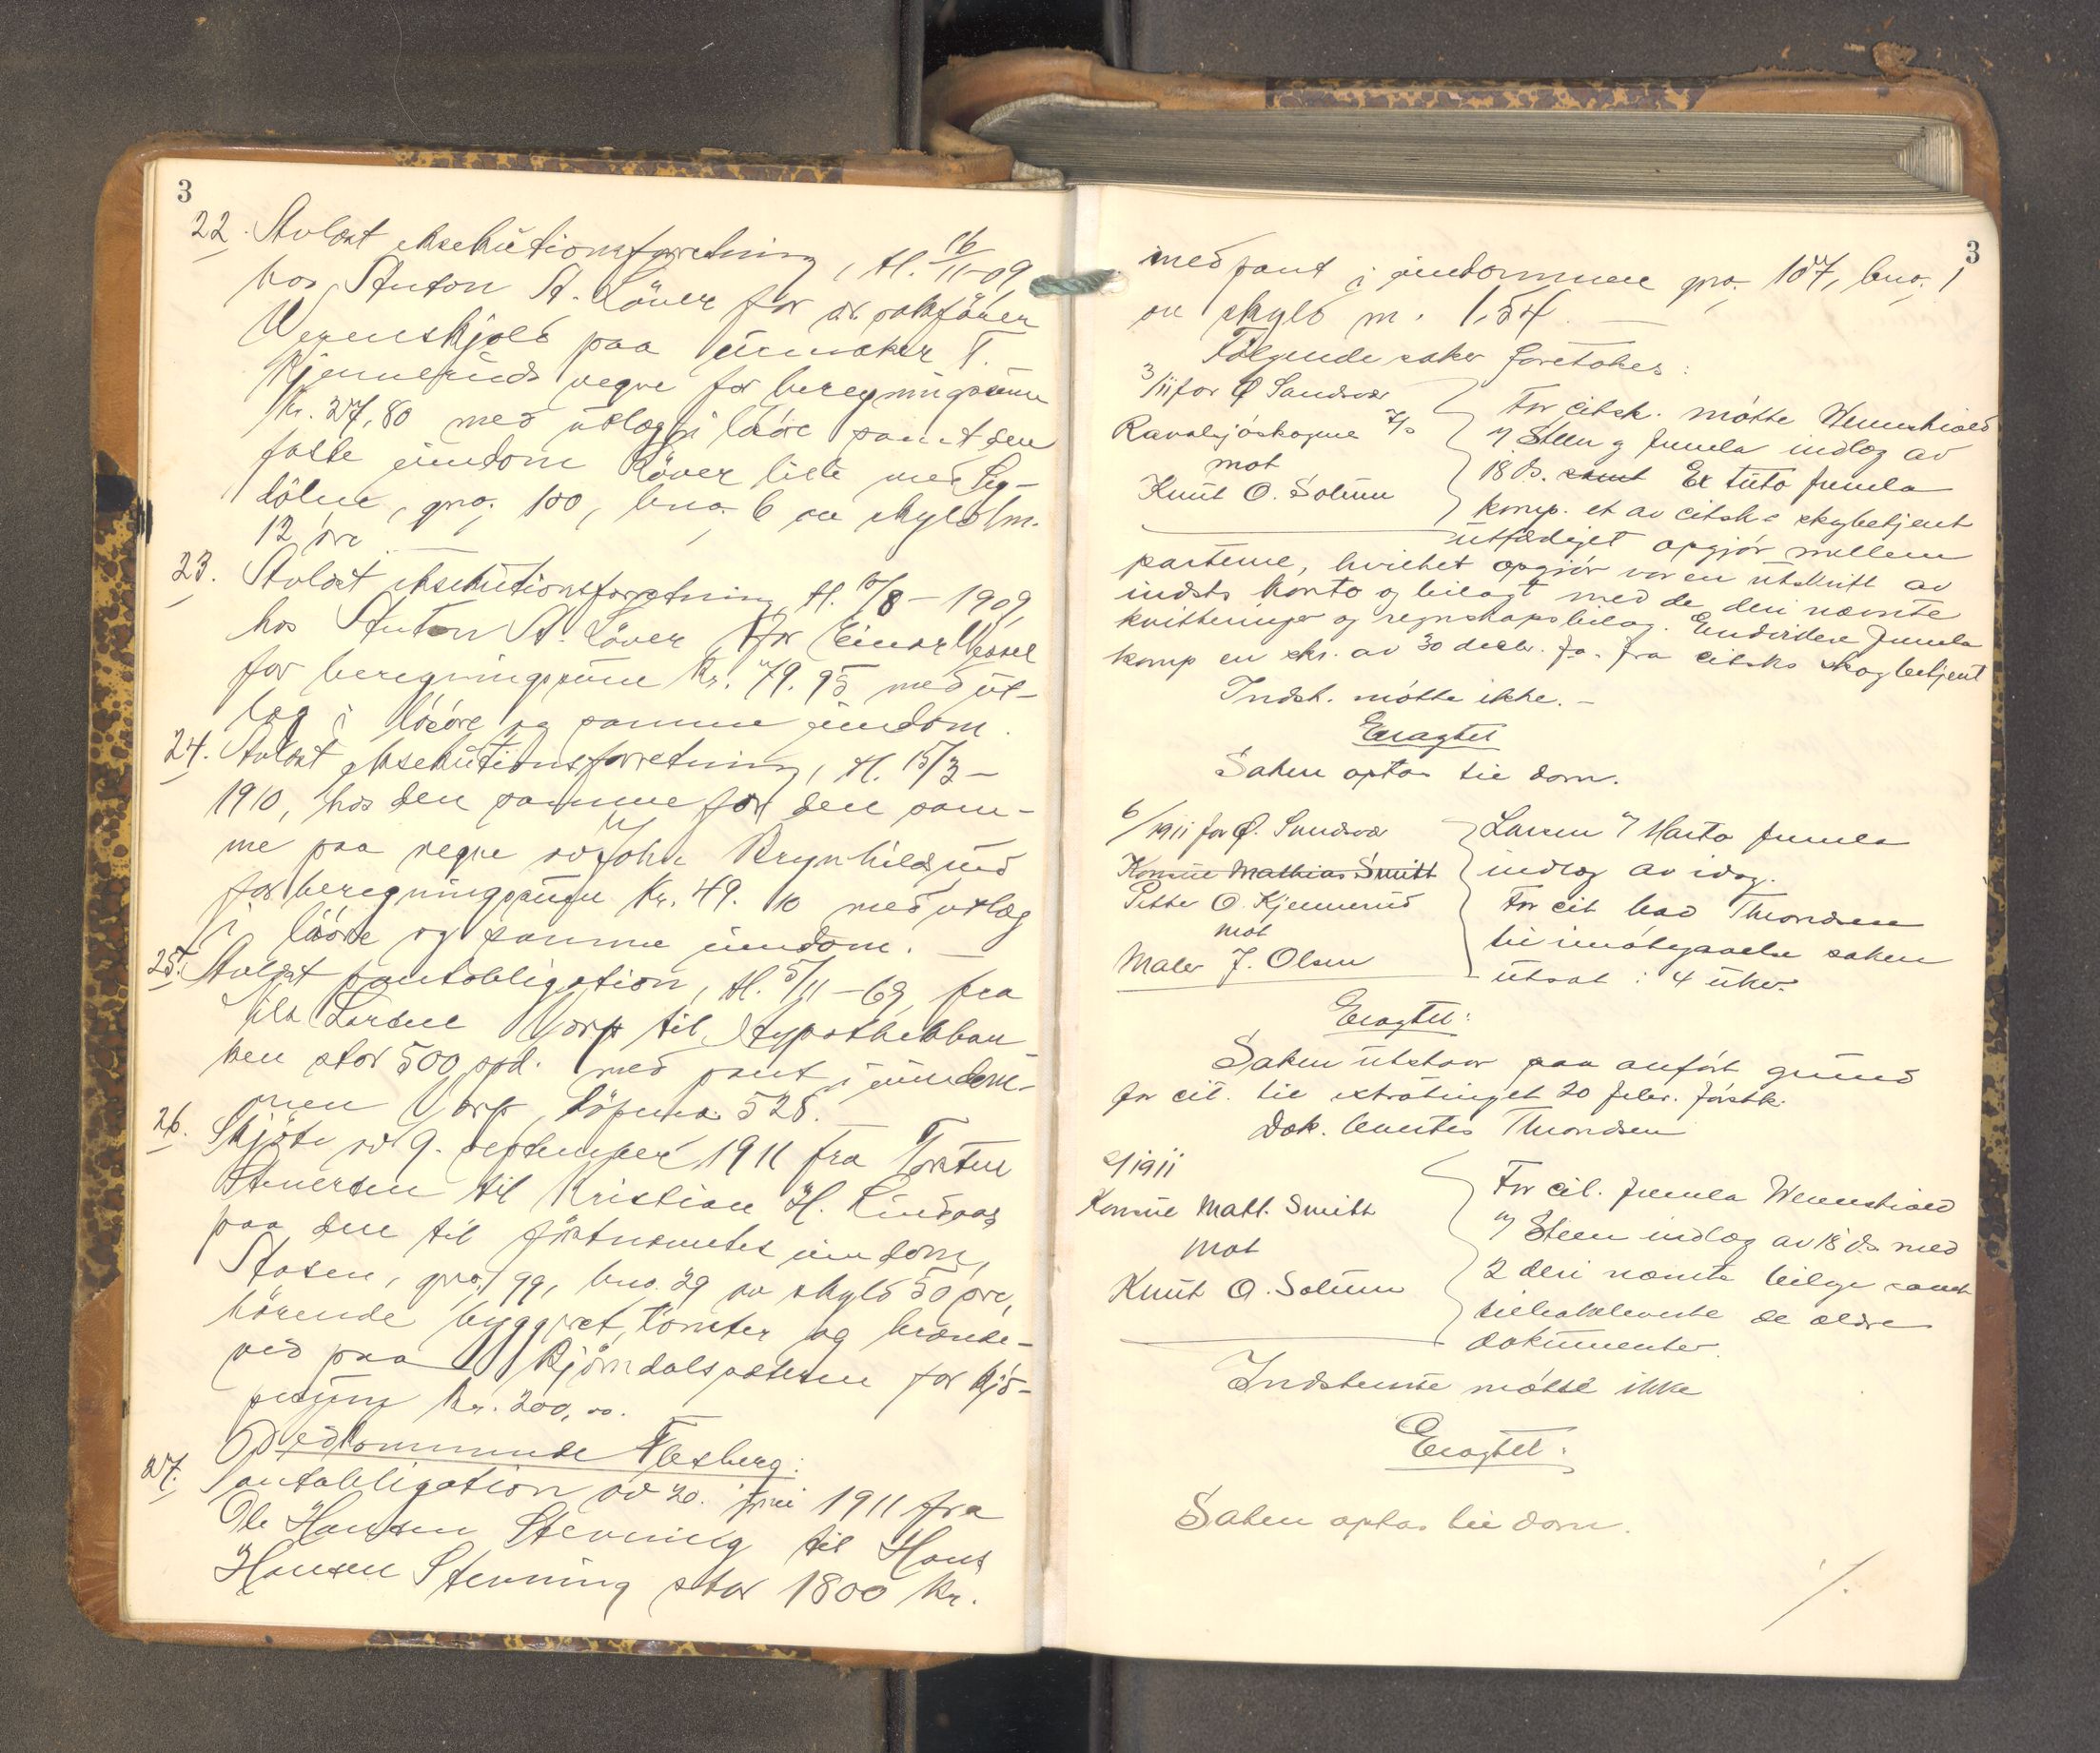 3
22. Avlæst eksekutionsforretning, tl. 16/11-09,
hos Anton A. Löver for o.r.sakförer
Werenskjold paa urmaker T.
Kjennerüds vegne for beregningssum
Kr. 27,80 med utlæg i løsöre samt den
faste eiendom Löver lille med Seg-
dölene, gno. 100, bno. 6 av skyld m.
12 öre
23. Avlæst eksekutionsforretning, tl. 10/8-1909,
hos Anton A. Löver, for Einar Wessel
for beregningssum Kr. 79.95 med ut-
læg i lösöre og samme eiendom.
24. Avlæst eksekutionsforretning, tl. 15/3-
1910, hos den samme for den sam-
me paa vegne av John Brynhildsrud
for beregningssum Kr. 49.10 med utlæg
i lösöre og samme eiendom.
25. Avlæst pantobligation, tl. 5/11-69, fra
Ole Larsen Vorp til Hypothekban-
ken stor 500 spd. med pant i eiendom-
men Vorp, löpeno. 528.
26. Skjöte av 9. september 1911 fra Torsten
Stenersen til Kristian H. Lindaas
paa den til förstnævntes eiendom,
Stasen, gno. 99, bno. 29 av skyld 50 öre,
hörende byggeret, tömter og brænde-
ved paa Björndalsæteren for kjö-
pesum Kr. 200,00.
Vedkommende Flesberg:
27. Pantobligation av 20. juni 1911 fra
Ole Hansen Stevning til Hans
Hansen Stevning stor 1800 Kr.
3
med pant i eiendommen gno. 107, bno. 1
av skyld m. 1,54.
Følgende saker foretokes:
3/11 for Ø. Sandsvær
Ravalsjöskogene A/s
mot
Knut O. Solum
For citsk. mötte Werenskiold
v/ Steen og fremla indlæg av
18 ds. samt Ex tuto fremla
komp. et av citsk.s skogbetjent
utfærdiget opgjör mellem
parterne, hvilket opgjör var en utskrift av
indsts konto og bilagt med de deri nævnte
kvitteringer og regnskapsbilag. Endvidere fremla
komp en skr. av 30 decbr. f.a. fra citsks skogbetjent
Indst. mötte ikke. -
Eragtet
Saken optas til dom.
6/1911 for Ø. Sandsvær
Konsul Mathias Smitt
Petter O. Kjennerud
mot
Maler J. Olsen
Larsen v/ Marto fremla
indlæg av idag.
For cit bad Throndsen
til imötegaaelse saken
utsat i 4 uker.
Eragtet:
Saken utstaar paa anfört grund
for cit. til extratinget 20 febr. förstk.
Dok. levertes Throndsen
2/1911
Konsul Matt. Smitt
mot
Knut O. Solum
For cit. fremla Werenskiold
v/ Steen indlæg av 18 ds med
2 deri nævnte bilag samt
tilbakeleverte de ældre
dokumenter.
Indstevnte mötte ikke
Eragtet:
Saken optas til dom.
·/.